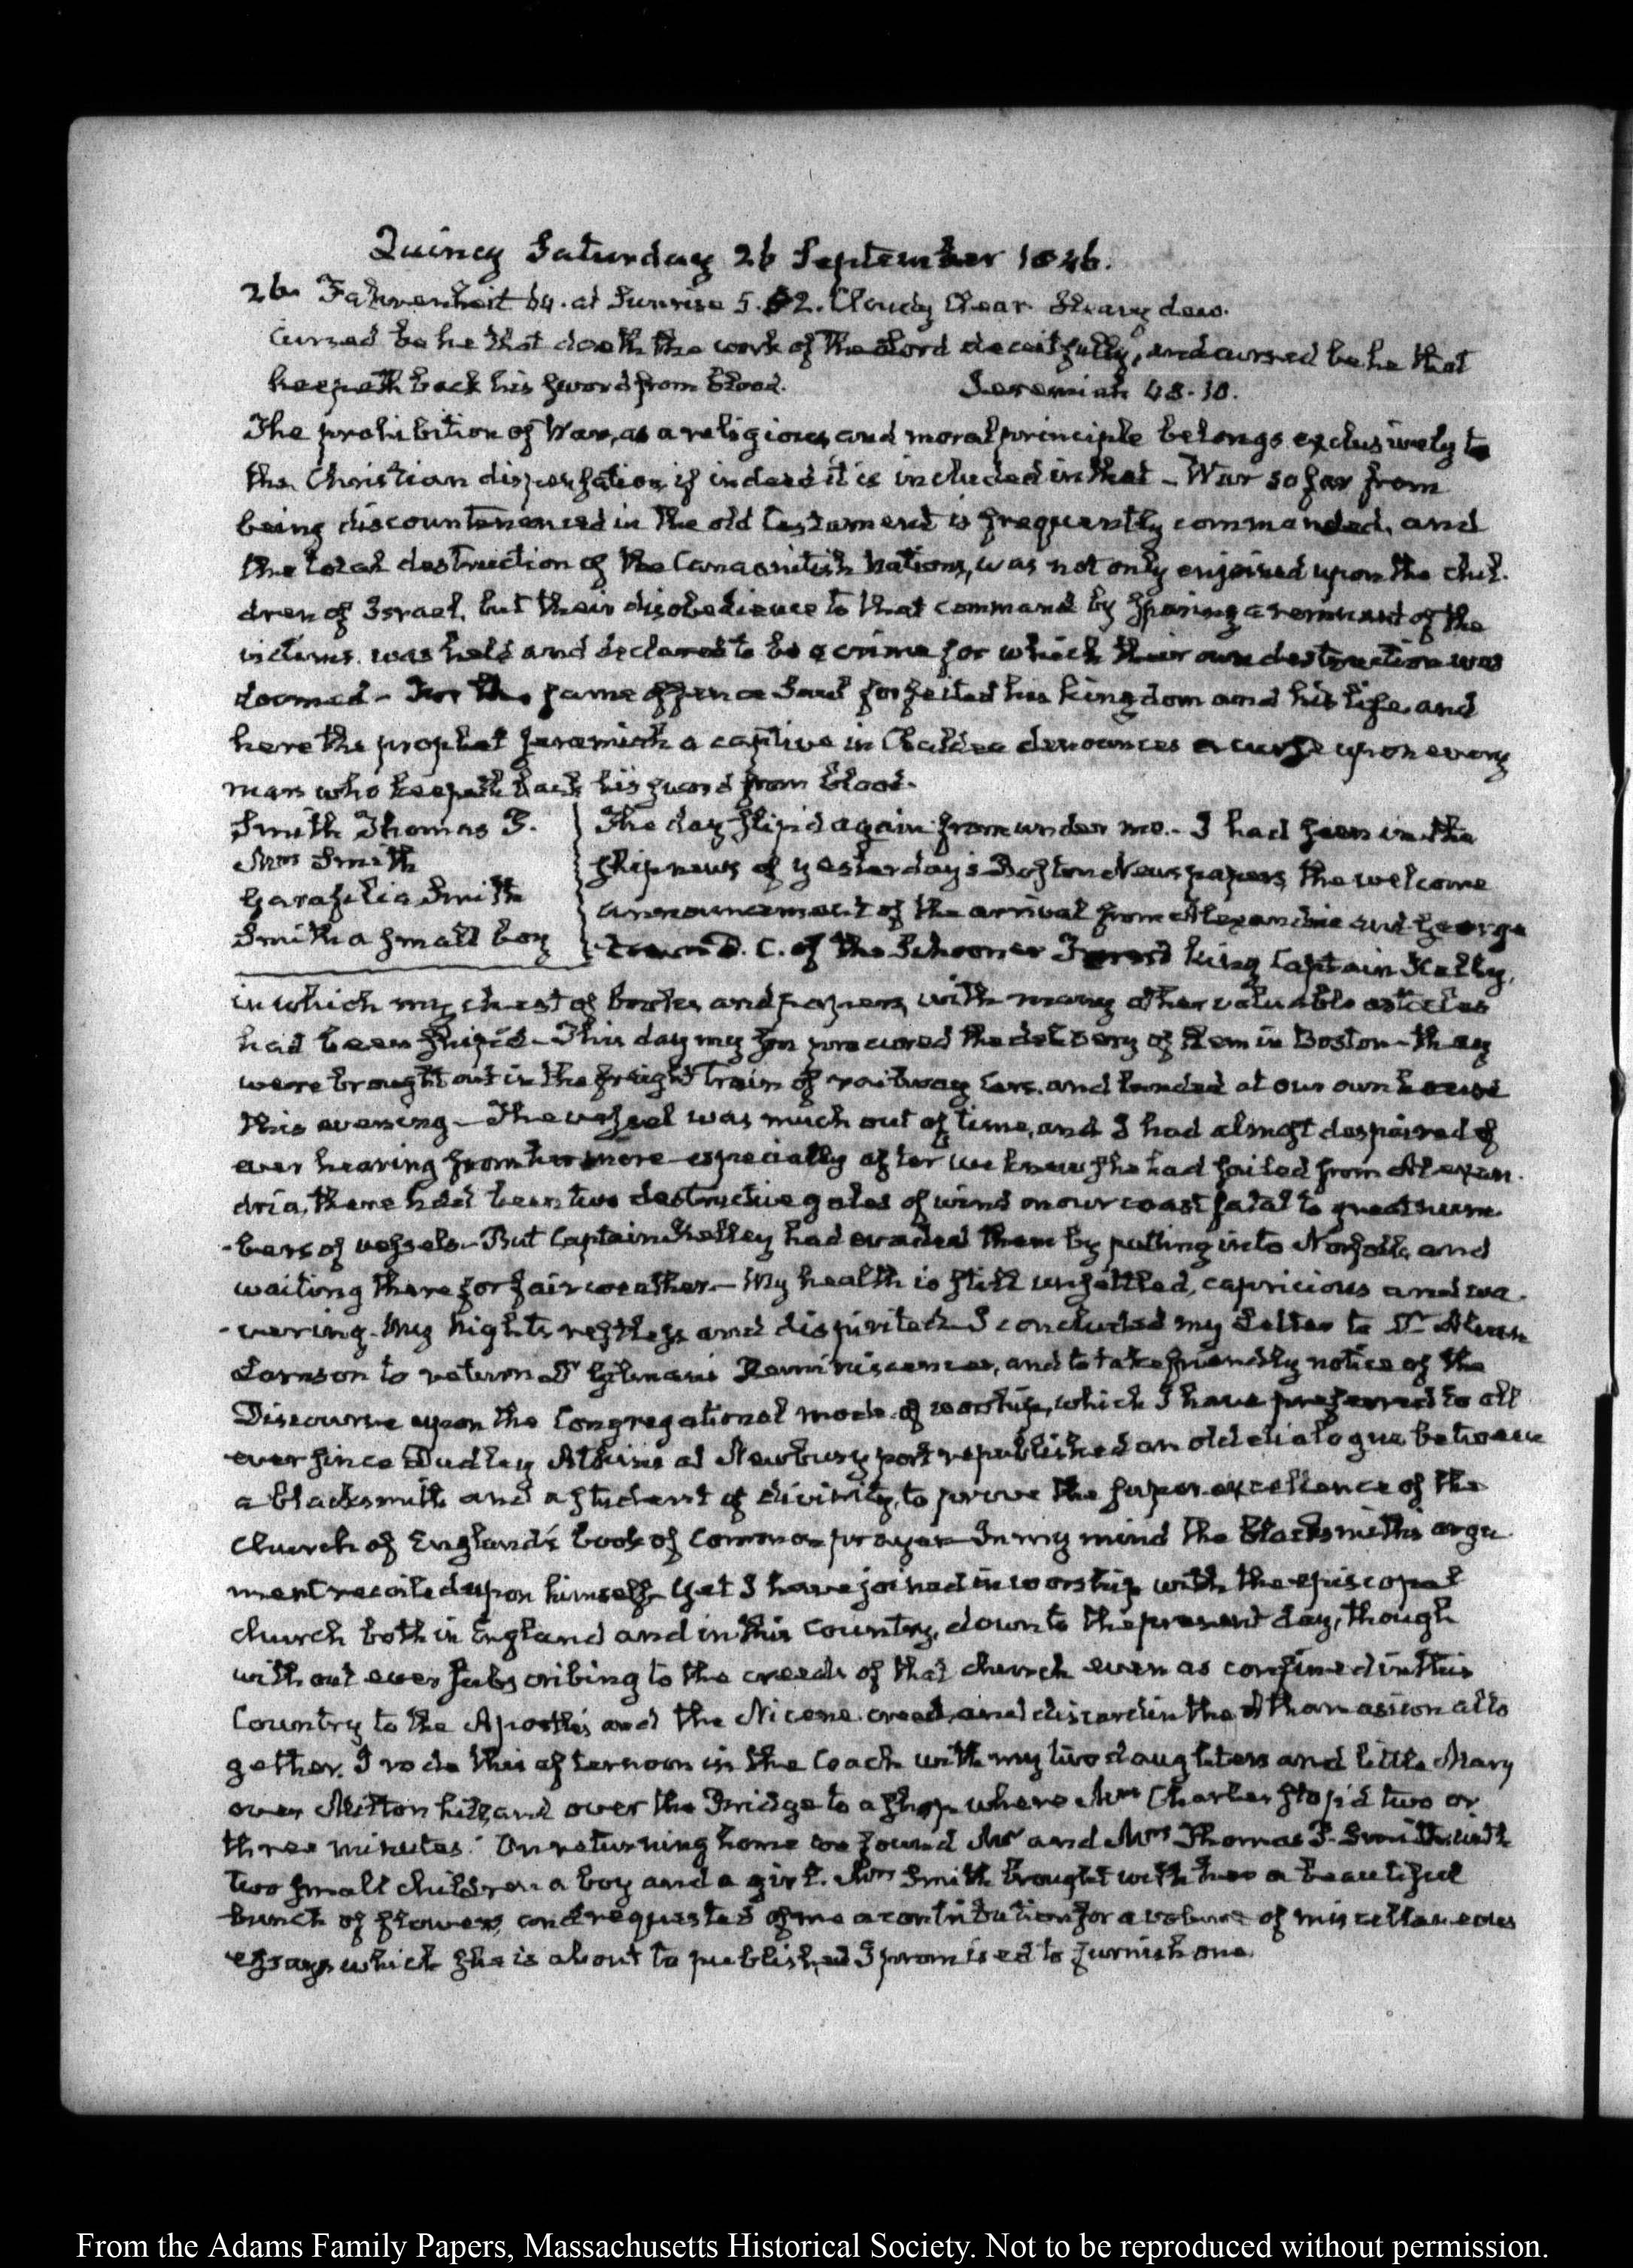 Quincy Saturday 26 September 1846.
26. Fahrenheit 64. at Sunrise 5.52. Cloudy Clear. Heavy dew.
Cursed be he that doeth the work of the Lord deceitfully, and cursed be he that
keepeth back his sword from blood. Jeremiah 48.10.
The prohibition of War, as a religious and moral principle belongs exclusively to
the Christian dispensation if indeed it is included in that - War so far from
being discountenanced in the old testament is frequently commanded, and
the total destruction of the Canaanitish Nations, was not only enjoined upon the chil-
dren of Israel, but their disobedience to that command by sparing a remnant of the
victims was held and declared to be a crime for which their own destruction was
doomed - For the same offence Saul forfeited his kingdom and his life, and
here the prophet Jeremiah a captive in Chaldea denounces a curse upon every
man who keepeth back his sword from blood.
Smith Thomas P.
Mrs Smith
Garafilia Smith
Smith a small boy
The day slip'd again from under me. - I had seen in the
ship news of yesterday's Boston Newspapers, the welcome
announcement of the arrival from Alexandria and George-
-town D. C. of the Schooner King Captain Kelley,
in which my chest of books, and papers, with many other valuable articles
had been ship'd - This day my son procured the delivery of them in Boston - they
were brought out in the freight train of railway cars, and landed at our own house
this evening - The vessel was much out of time, and I had almost despaired of
ever hearing from her more especially after we knew she had sailed from Alexan-
dria, there had been two destructive gales of wind on our coast fatal to great num-
-bers of vessels. - But Captain Kelley had evaded them by putting into Norfolk, and
waiting there for fair weather. - My health is still unsettled, capricious and wa-
-vering. My nights restless and dispirited - I concluded my Letter to Dr Alvan
Lamson to return Dr Gilman's Reminiscences, and to take friendly notice of the
Discourse upon the Congregational mode of worship, which I have preferred to all
ever since Dudley Atkins at Newbury port republished an old dialogue between
a blacksmith and a student of divinity, to prove the super-excellence of the
Church of England's book of Common prayer - In my mind the blacksmith's argu-
ment recoiled upon himself - Yet I have joined in worship with the episcopal
church both in England and in this Country, down to the present day, though
without ever subscribing to the creeds of that church even as confined in this
Country to the Apostles and the Nicene creed, and discardin the Athanasian alto
gether. I rode this afternoon in the Coach with my two daughters and little Mary
over Milton hill, and over the Bridge to a shop where Mrs Charles stop'd two or
three minutes. On returning home we found Mr and Mrs Thomas P. Smith with
two small children a boy and a girl. Mrs Smith brought with her a beautiful
bunch of flowers, and requested of me a contribution for a volume of miscellaneous
essays which she is about to publish, and I promised to furnish one.
From the Adams Family Papers, Massachusetts Historical Society. Not to be reproduced without permission.